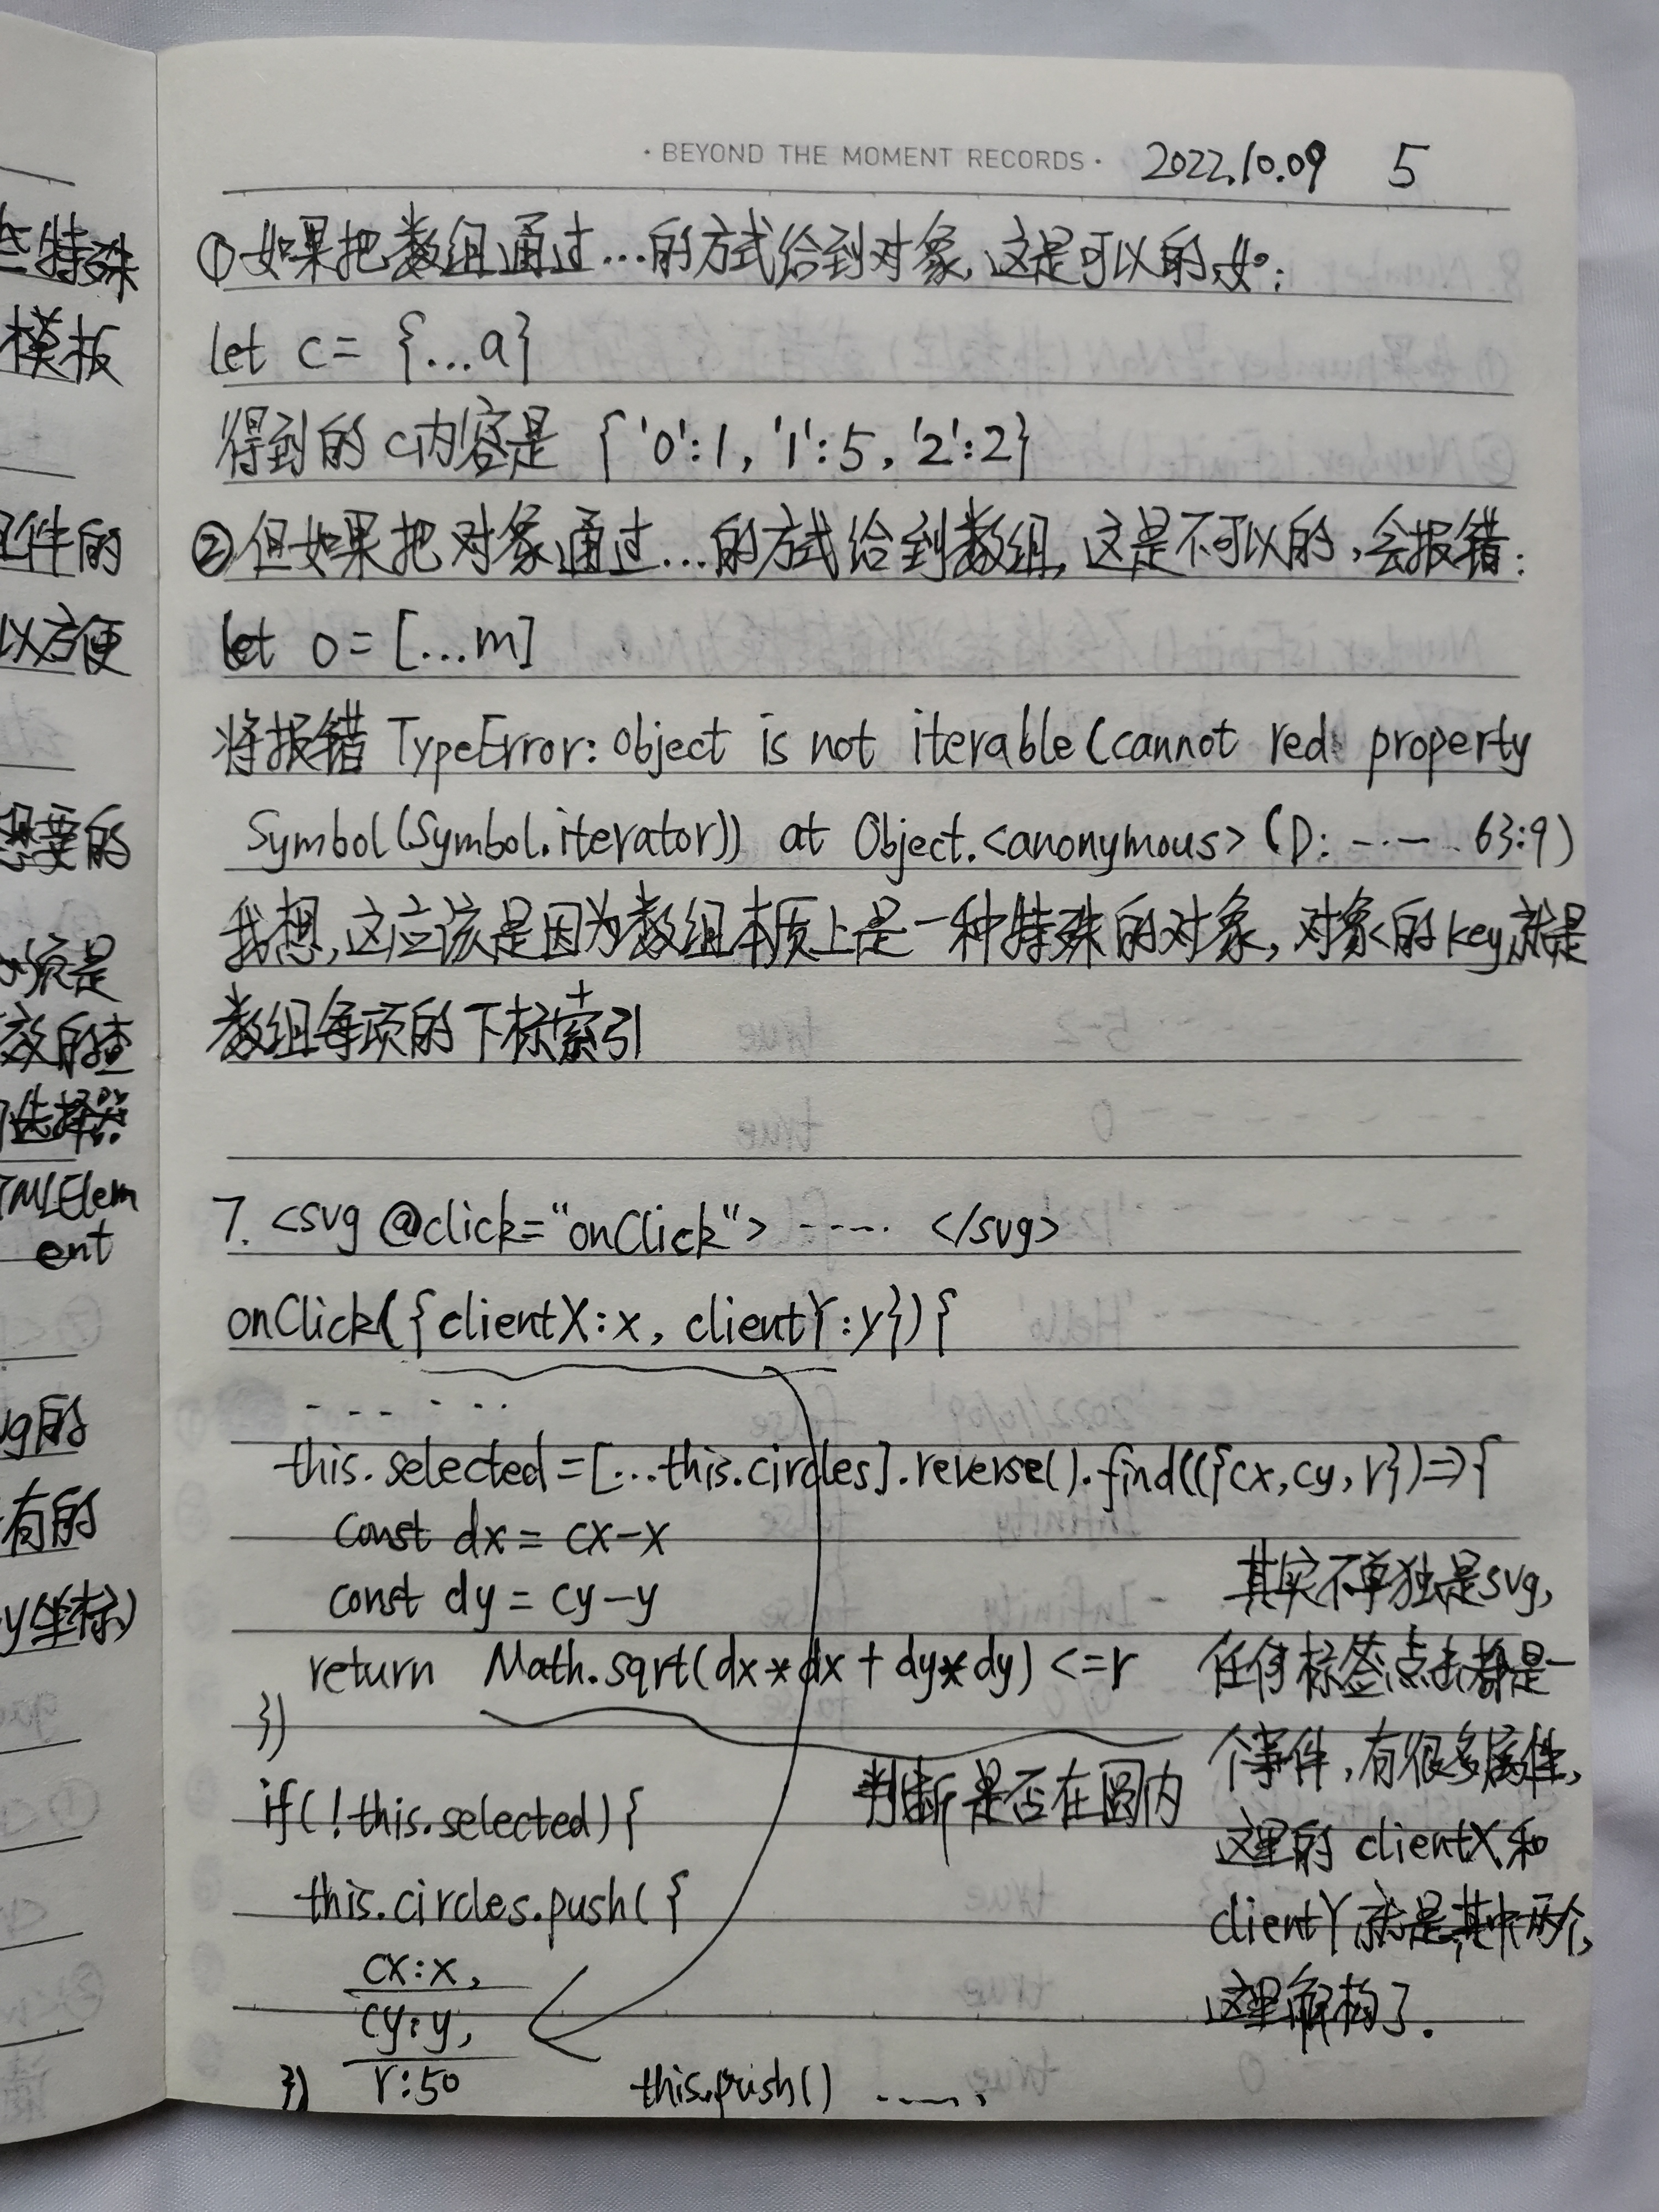 · BEYOND THE MOMENT RECORDS · 2022.10.09 5
①如果把数组通过...的方式给到对象,这是可以的,如:
let c = {...a}
得到的c内容是 {'0':1, '1':5, '2':2}
②但如果把对象通过...的方式给到数组,这是不可以的,会报错:
let o = [...m]
将报错 TypeError: object is not iterable (cannot red property
Symbol(Symbol.iterator)) at Object.<anonymous> (D: ----- 63:9)
我想,这应该是因为数组本质上是一种特殊的对象,对象的key就是
数组每项的下标索引
7. <svg @click="onClick"> ····· </svg>
onClick({clientX:x, clientY:y}){
······
this.selected=[...this.circles].reverse().find(({cx,cy,r})=>{
const dx = cx-x
const dy = cy-y
return Math.sqrt(dx*dx+dy*dy) <=r
})
判断是否在圆内
if(!this.selected){
this.circles.push({
cx:x,
cy:y,
r:50
})
this.push() ······
其实不单独是svg,
任何标签点击都是一
个事件,有很多属性,
这里的 clientX和
clientY就是其中两个,
这里解构了.
些特殊
模板
件的
以方便
想要的
是
效的查
选择器
TMLElem
ent
vg的
有的
y坐标)